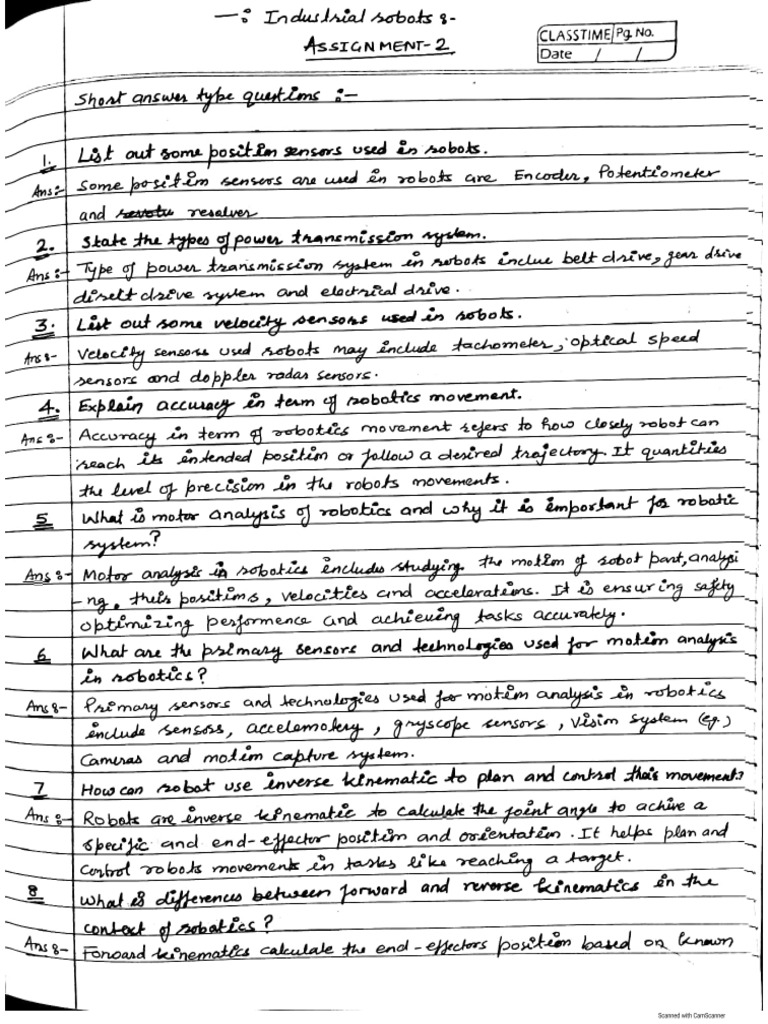 —: Industrial robots :-
ASSIGNMENT-2
CLASSTIME Pg. No.
Date / /
Short answer type questions :-
1. List out some position sensors used in robots.
Ans:- Some position sensors are used in robots are Encoder, Potentiometer
and resolver
2. State the types of power transmission system.
Ans :- Type of power transmission system in robots inclue belt drive, gear drive
direct drive system and electrical drive.
3. List out some velocity sensors used in robots.
Ans :- Velocity sensors used robots may include tachometer, optical speed
sensors and doppler radar sensors.
4. Explain accuracy in term of robotics movement.
Ans :- Accuracy in term of robotics movement refers to how closely robot can
reach its intended position or follow a desired trajectory. It quantities
the level of precision in the robots movements.
5 What is motor analysis of robotics and why it is important for robotic
system?
Ans :- Motor analysis in robotics includes studying the motion of robot part, analysi
-ng, their positions, velocities and accelerations. It is ensuring safety
optimizing performence and achieving tasks accurately.
6 What are the primary sensors and technologies used for motion analysis
in robotics?
Ans :- Primary sensors and technologies used for motion analysis in robotics
include sensors, accelemotery, gryscope sensors, vision system (eg.)
Cameras and motion capture system.
7 How can robot use inverse kinematic to plan and control their movement?
Ans :- Robots are inverse kinematic to calculate the joint angle to achive a
specific and end-effector position and orientation. It helps plan and
control robots movements in tasks like reaching a target.
8 What is differences between forward and reverse kinematics in the
context of robotics?
Ans :- Forward kinematics calculate the end-effectors position based on known
Scanned with CamScanner